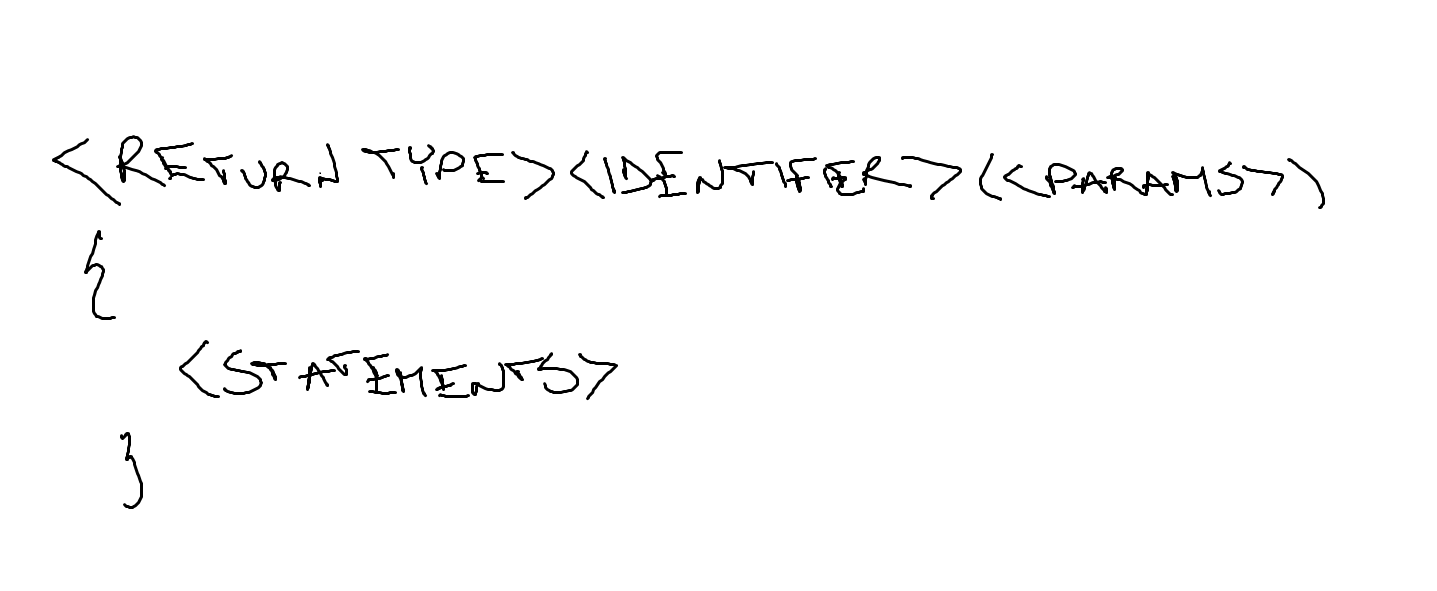 <RETURN TYPE><IDENTIFER>(<PARAMS>)
{
<STATEMENTS>
}